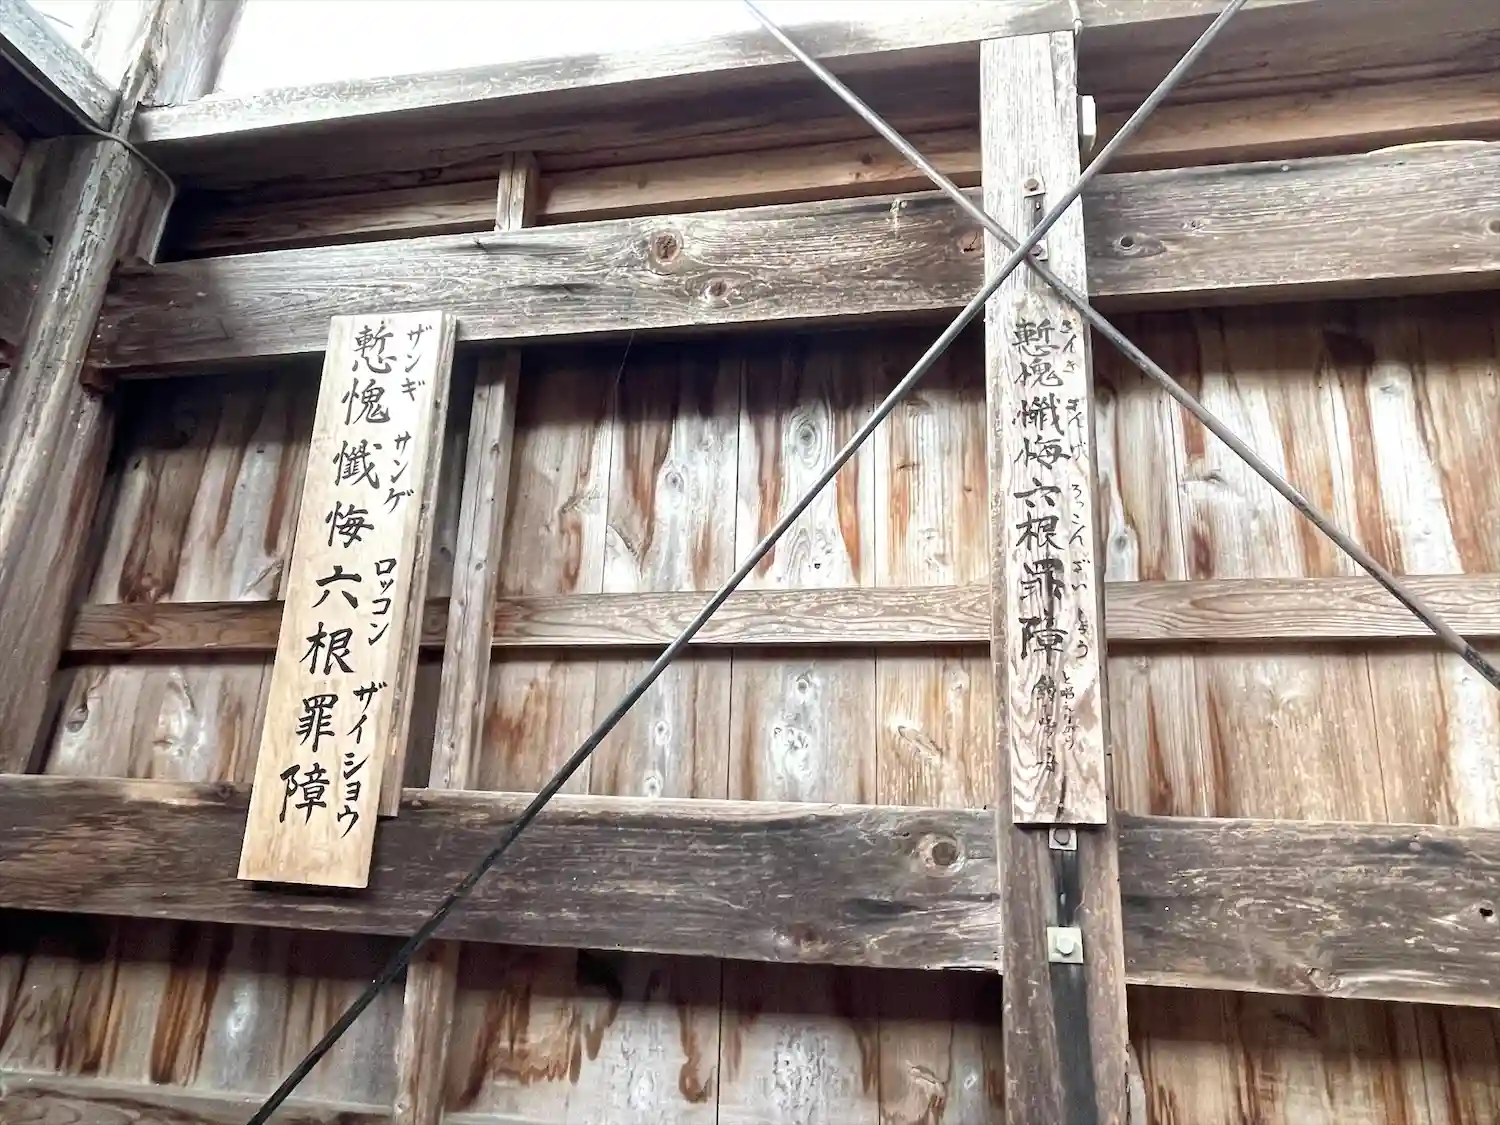 慙愧懺悔六根罪障
ざんぎ さんげ ろっこん ざいしょう
と唱えて
慙愧懺悔六根罪障
ザンギ サンゲ ロッコン ザイショウ